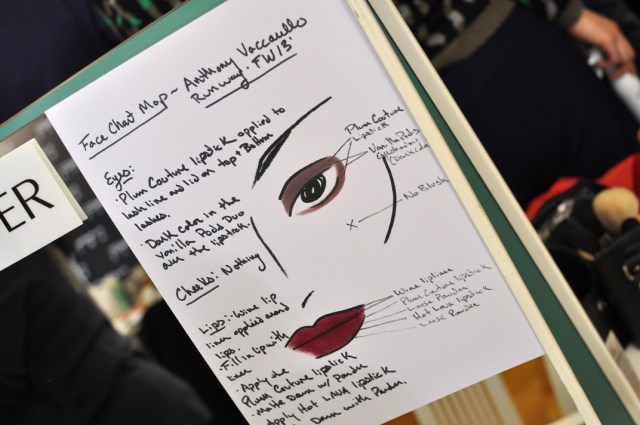 ER
Face Chart Map ~ Anthony Vaccarello
Runway. FW13'
Eyes:
· Plum Couture lipstick applied to
lash line and lid on top + Bottom
lashes.
· Dark color in the
Vanilla Podd Duo
over the lipstick.
Cheeks: Nothing
Lips: Wine lip
liner applied around
lips.
· Fill in lip with
liner
· Apply the
Plum Couture lipstick
· Matte Down w/ Powder
Apply Hot LAVA lipstick
Down with Powder.
Plum Couture
Lipstick
Vanilla Podd
No Blush
X
Wine lipliner
Plum Couture lipstick
Loose Powder
Hot Lava lipstick
Loose Powder